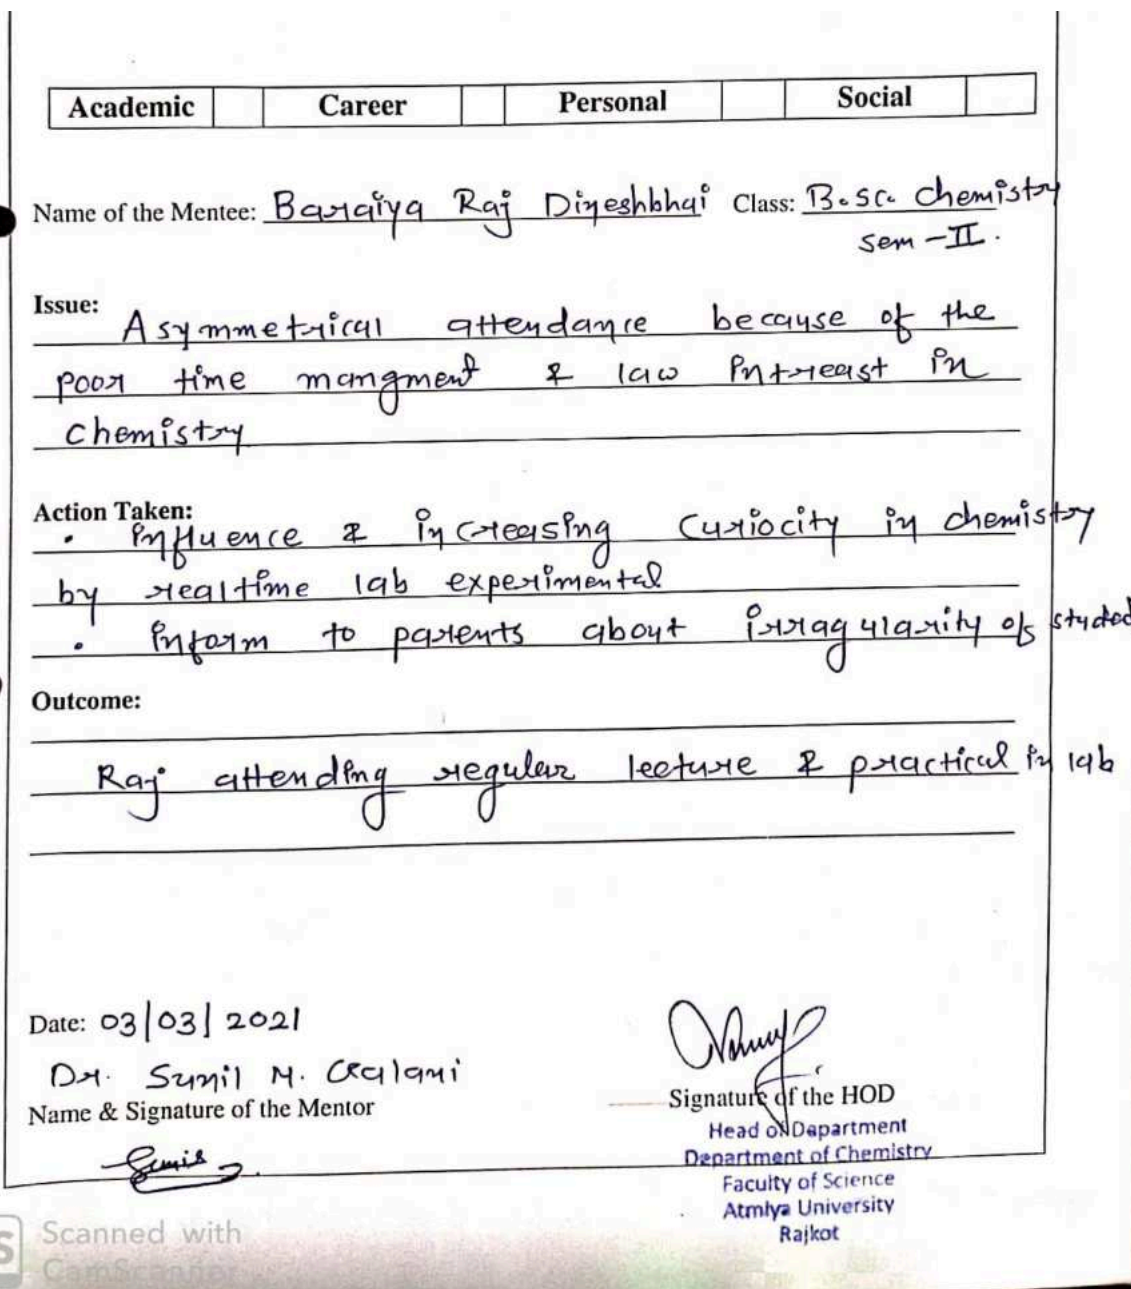 Academic Career Personal Social
Name of the Mentee: Baraiya Raj Dineshbhai Class: B.sc. chemistry
sem - II.
Issue:
Asymmetrical attendance because of the
poor time mangment & law intreast in
chemistry
Action Taken:
• influence & increasing curiocity in chemistry
by realtime lab experimental
• inform to parents about irragularity of studed
Outcome:
Raj attending regular lecture & practical in lab
Date: 03/03/2021
Dr. Sunil M.
Name & Signature of the Mentor
Signature of the HOD
Head of Department
Department of Chemistry
Faculty of Science
Atmiya University
Rajkot
Scanned with
CamScanner